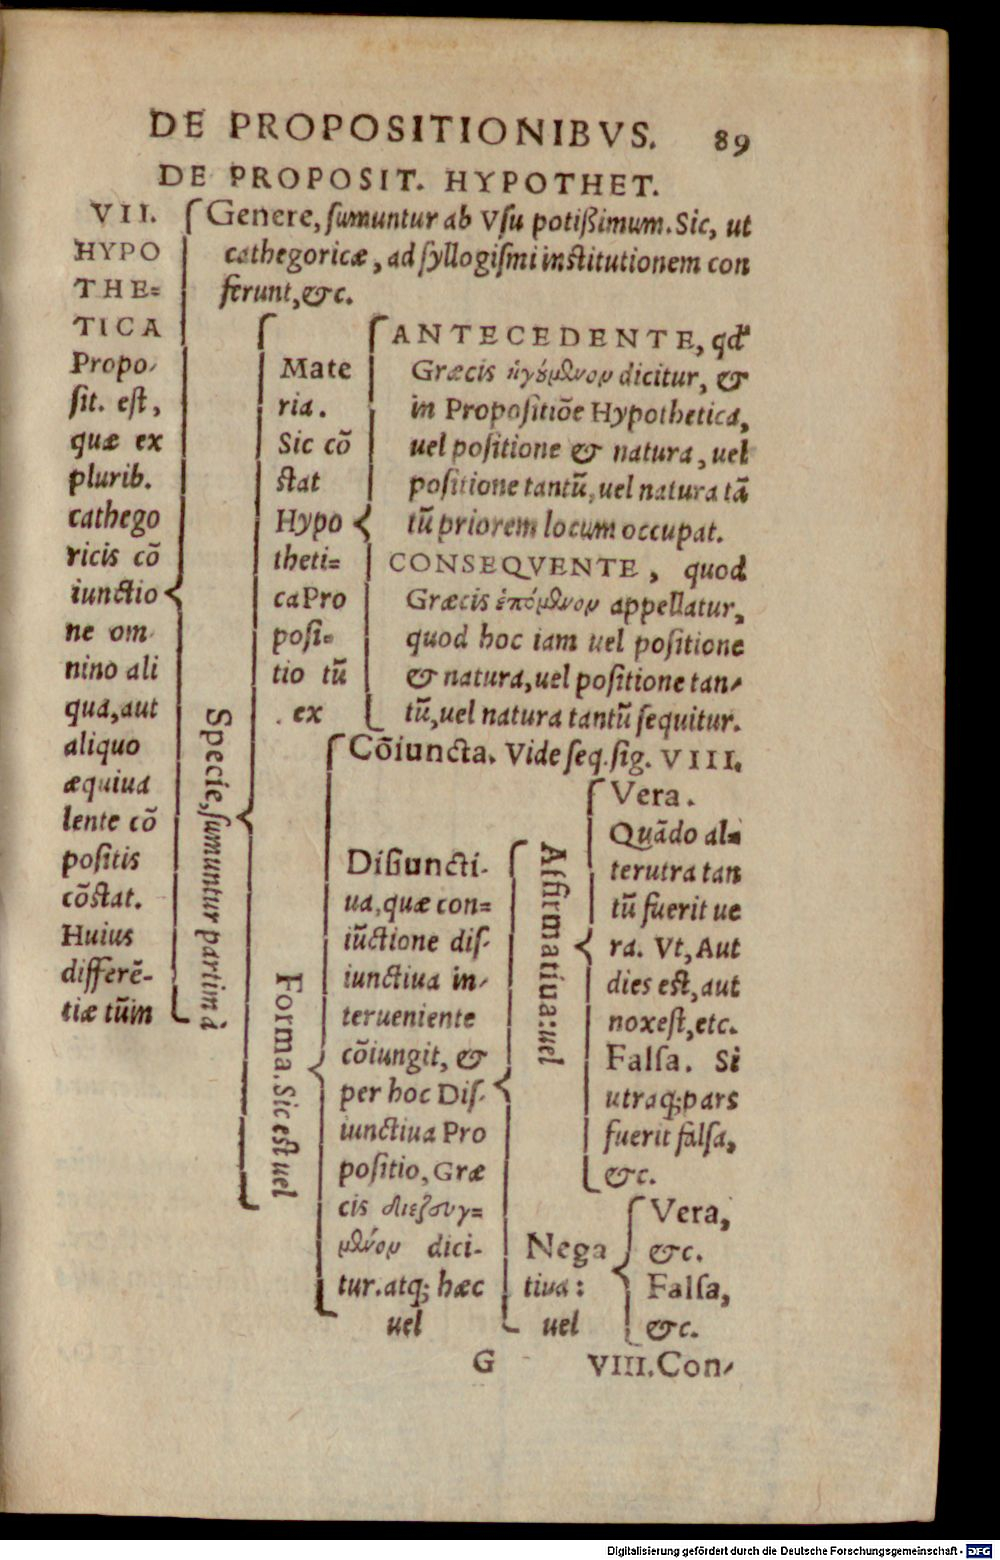 DE PROPOSITIONIBVS. 89
DE PROPOSIT. HYPOTHET.
VII.
HYPO
THE=
TICA
Propo-
ſit. eſt,
quæ ex
plurib.
cathego
ricis cō
iunctio
ne om
nino ali
qua, aut
aliquo
æquiua
lente cō
poſitis
cōſtat.
Huius
differē-
tiæ tūm
Genere, ſumuntur ab Vſu potißimum. Sic, ut
cathegoricæ, ad ſyllogiſmi inſtitutionem con
ferunt, &c.
Specie, ſumuntur partim à
Mate
ria.
Sic cō
ſtat
Hypo
theti=
ca Pro
poſi=
tio tū
ex
ANTECEDENTE, qd'
Græcis ἡγούμενον dicitur, &
in Propoſitiōe Hypothetica,
uel poſitione & natura, uel
poſitione tantū, uel natura tā
tū priorem locum occupat.
CONSEQVENTE, quod
Græcis ἑπόμενον appellatur,
quod hoc iam uel poſitione
& natura, uel poſitione tan-
tū, uel natura tantū ſequitur.
Forma. Sic eſt uel
Cōiuncta. Vide ſeq. ſig. VIII.
Diſiuncti-
ua, quæ con=
iūctione diſ-
iunctiua in-
terueniente
cōiungit, &
per hoc Diſ-
iunctiua Pro
poſitio, Græ
cis διεζευγ=
μένον dici-
tur. atq; hæc
uel
Affirmatiua: uel
Vera.
Quādo al=
terutra tan
tū fuerit ue
ra. Vt, Aut
dies eſt, aut
nox eſt, etc.
Falſa. Si
utraq; pars
fuerit falſa,
&c.
Nega
tiua:
uel
Vera,
&c.
Falſa,
&c.
G VIII. Con-
Digitalisierung gefördert durch die Deutsche Forschungsgemeinschaft - DFG